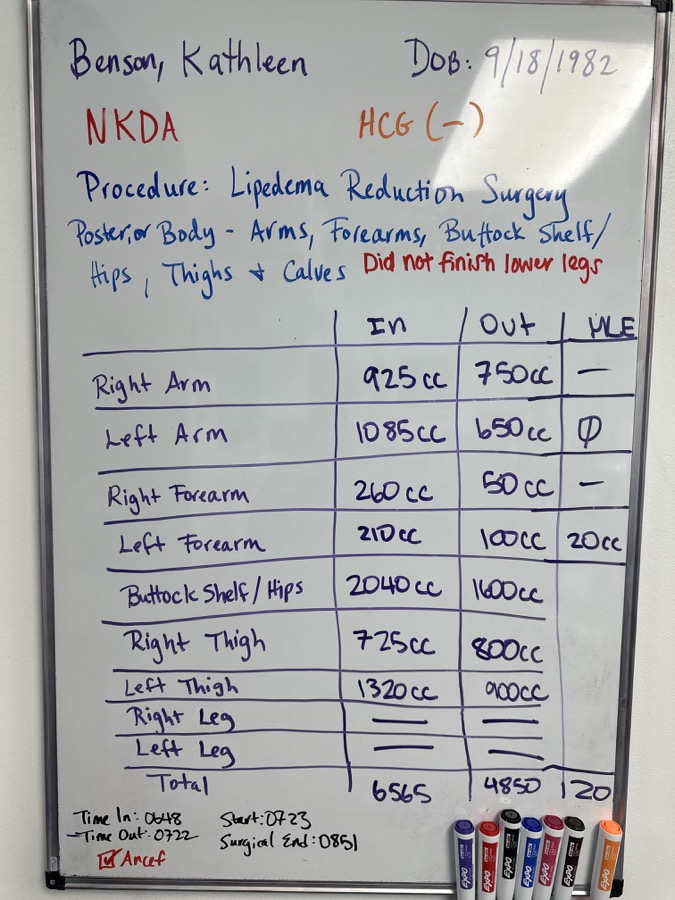 Benson, Kathleen DOB: 9/18/1982
NKDA HCG (-)
Procedure: Lipedema Reduction Surgery
Posterior Body - Arms, Forearms, Buttock Shelf/
Hips, Thighs & Calves Did not finish lower legs
In Out MLE
Right Arm 925cc 750cc —
Left Arm 1085cc 650cc Ø
Right Forearm 260cc 50cc —
Left Forearm 210cc 100cc 20cc
Buttock Shelf/Hips 2040cc 1600cc
Right Thigh 725cc 800cc
Left Thigh 1320cc 900cc
Right Leg — —
Left Leg — —
Total 6565 4850 120
Time In: 0648 Start: 0723
Time Out: 0722 Surgical End: 0851
☑ Ancef
EXPO EXPO EXPO EXPO EXPO EXPO EXPO